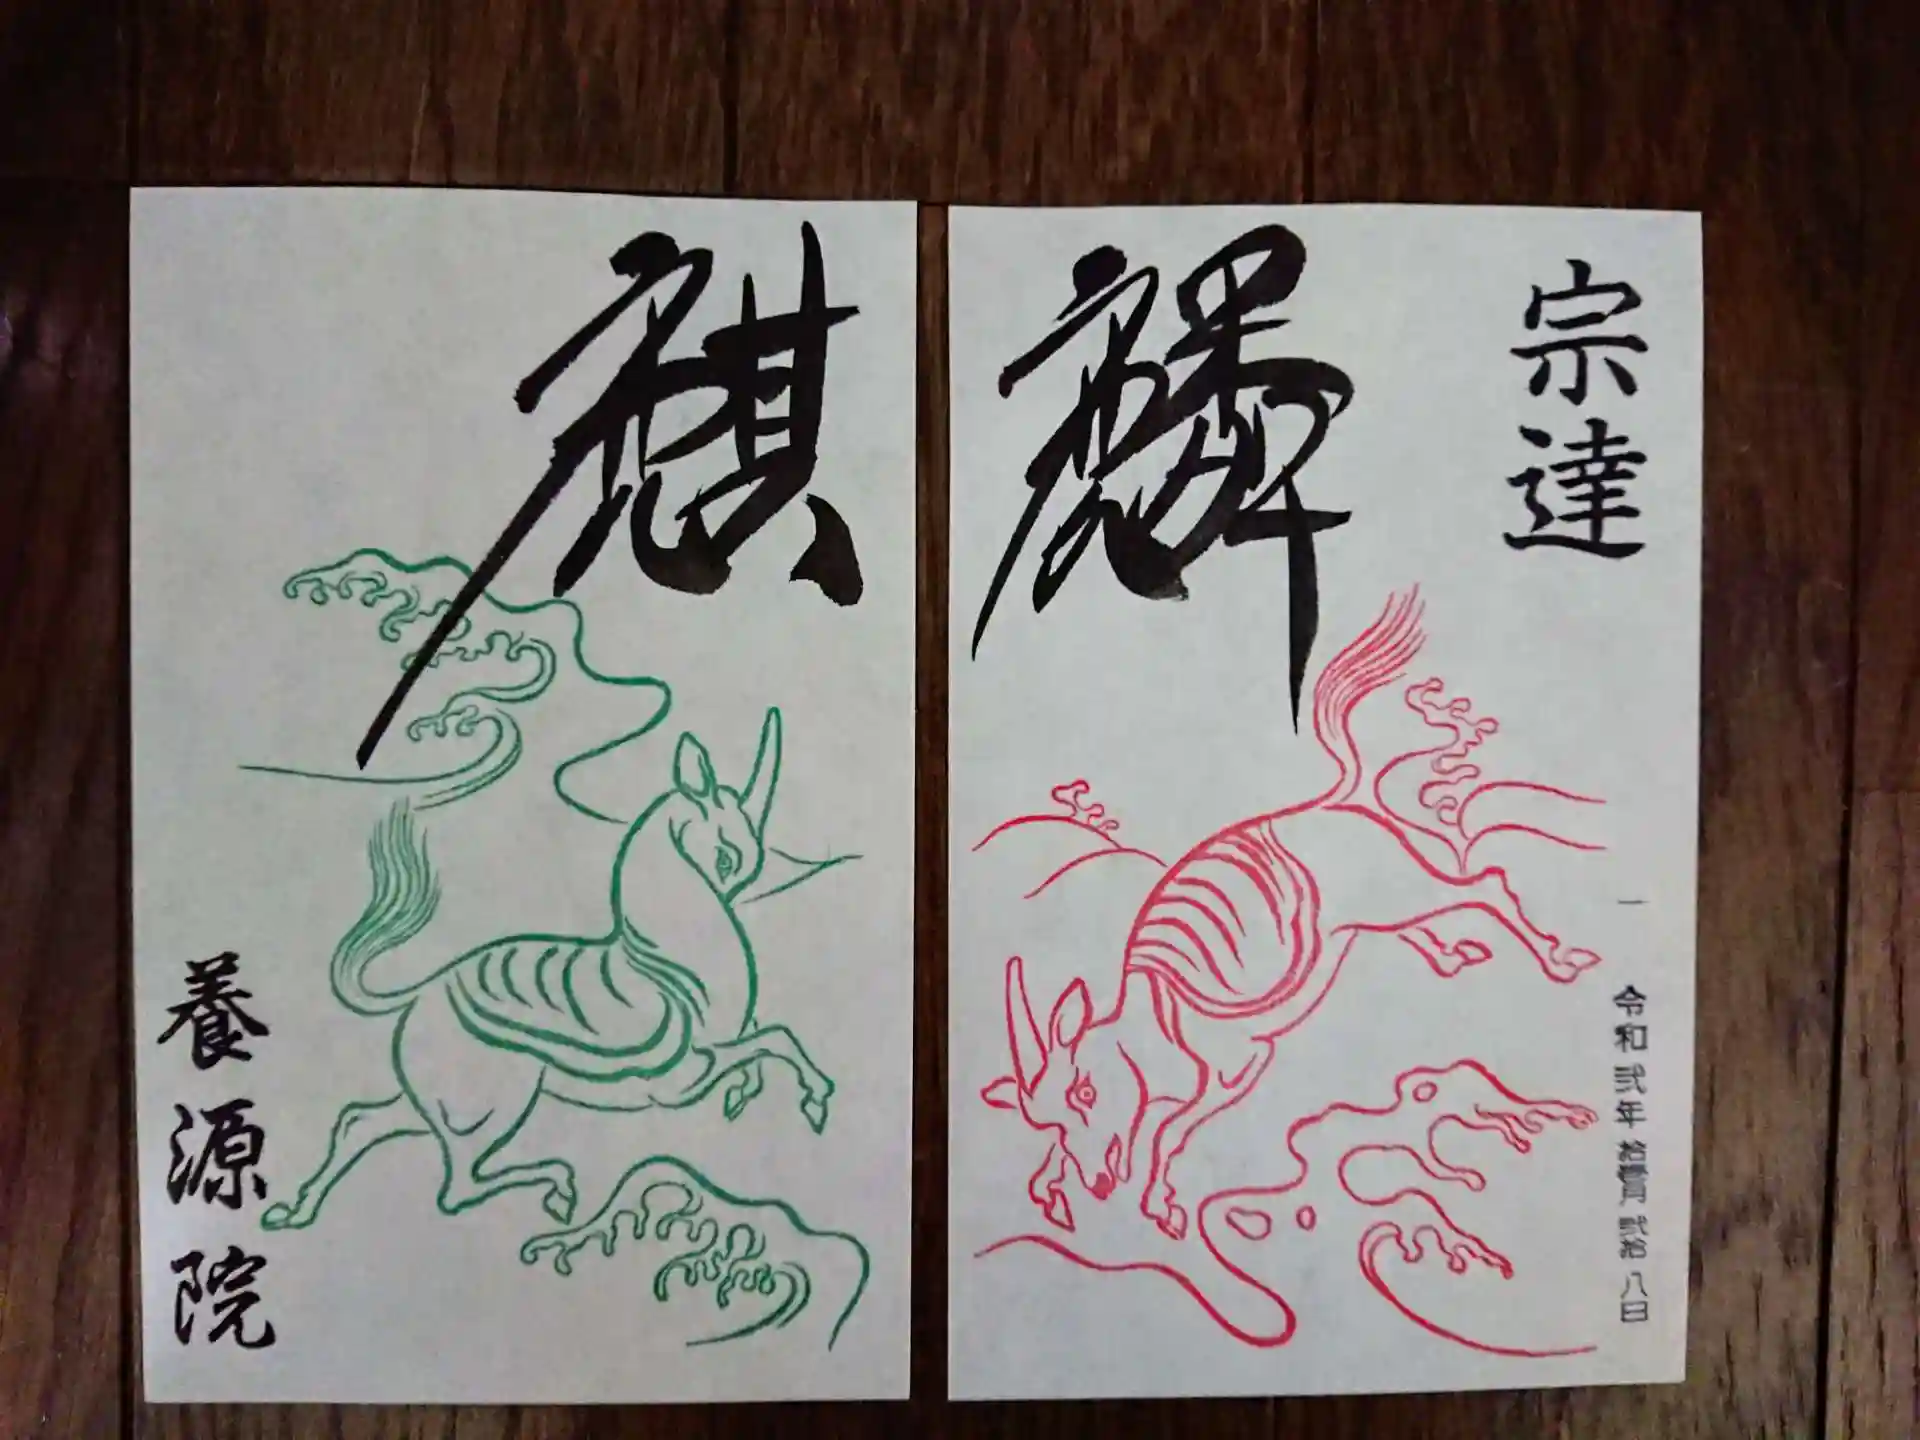 宗達
麟
令和弐年拾壹月弐拾八日
麒
養源院